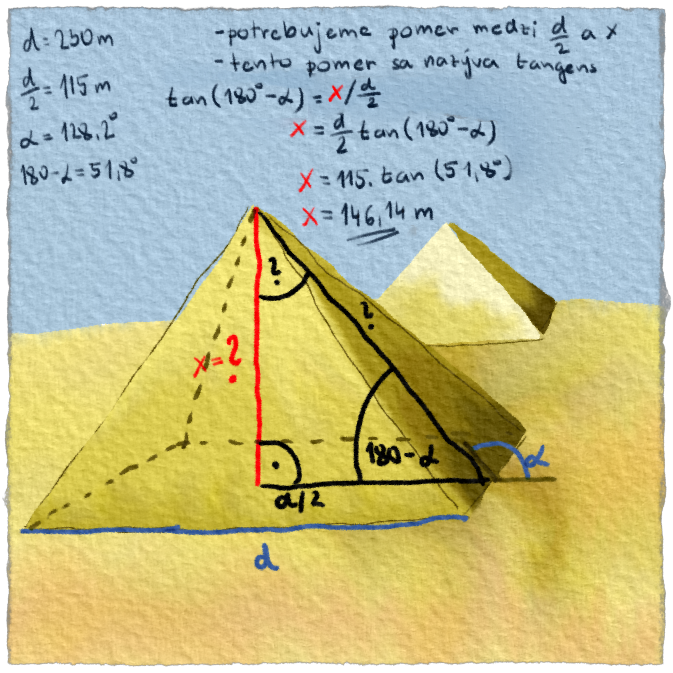 d=250m
d/2=115m
α=128,2°
180-α=51,8°
-potrebujeme pomer medzi d/2 a x
-tento pomer sa nazýva tangens
tan(180°-α)=x/d/2
x=d/2 tan(180°-α)
x=115.tan(51,8°)
x=146,14m
?
?
x=?
180-α
α
d/2
d